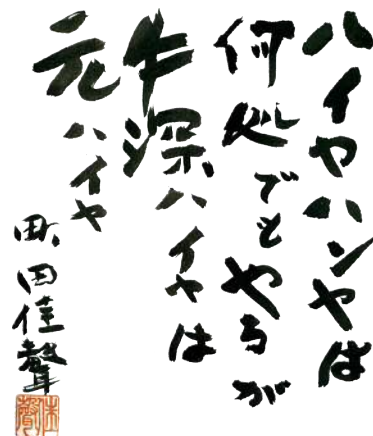 ハイヤハンヤは
何処でもやるが
牛深ハイヤは
元ハイヤ
町田佳聲
佳聲